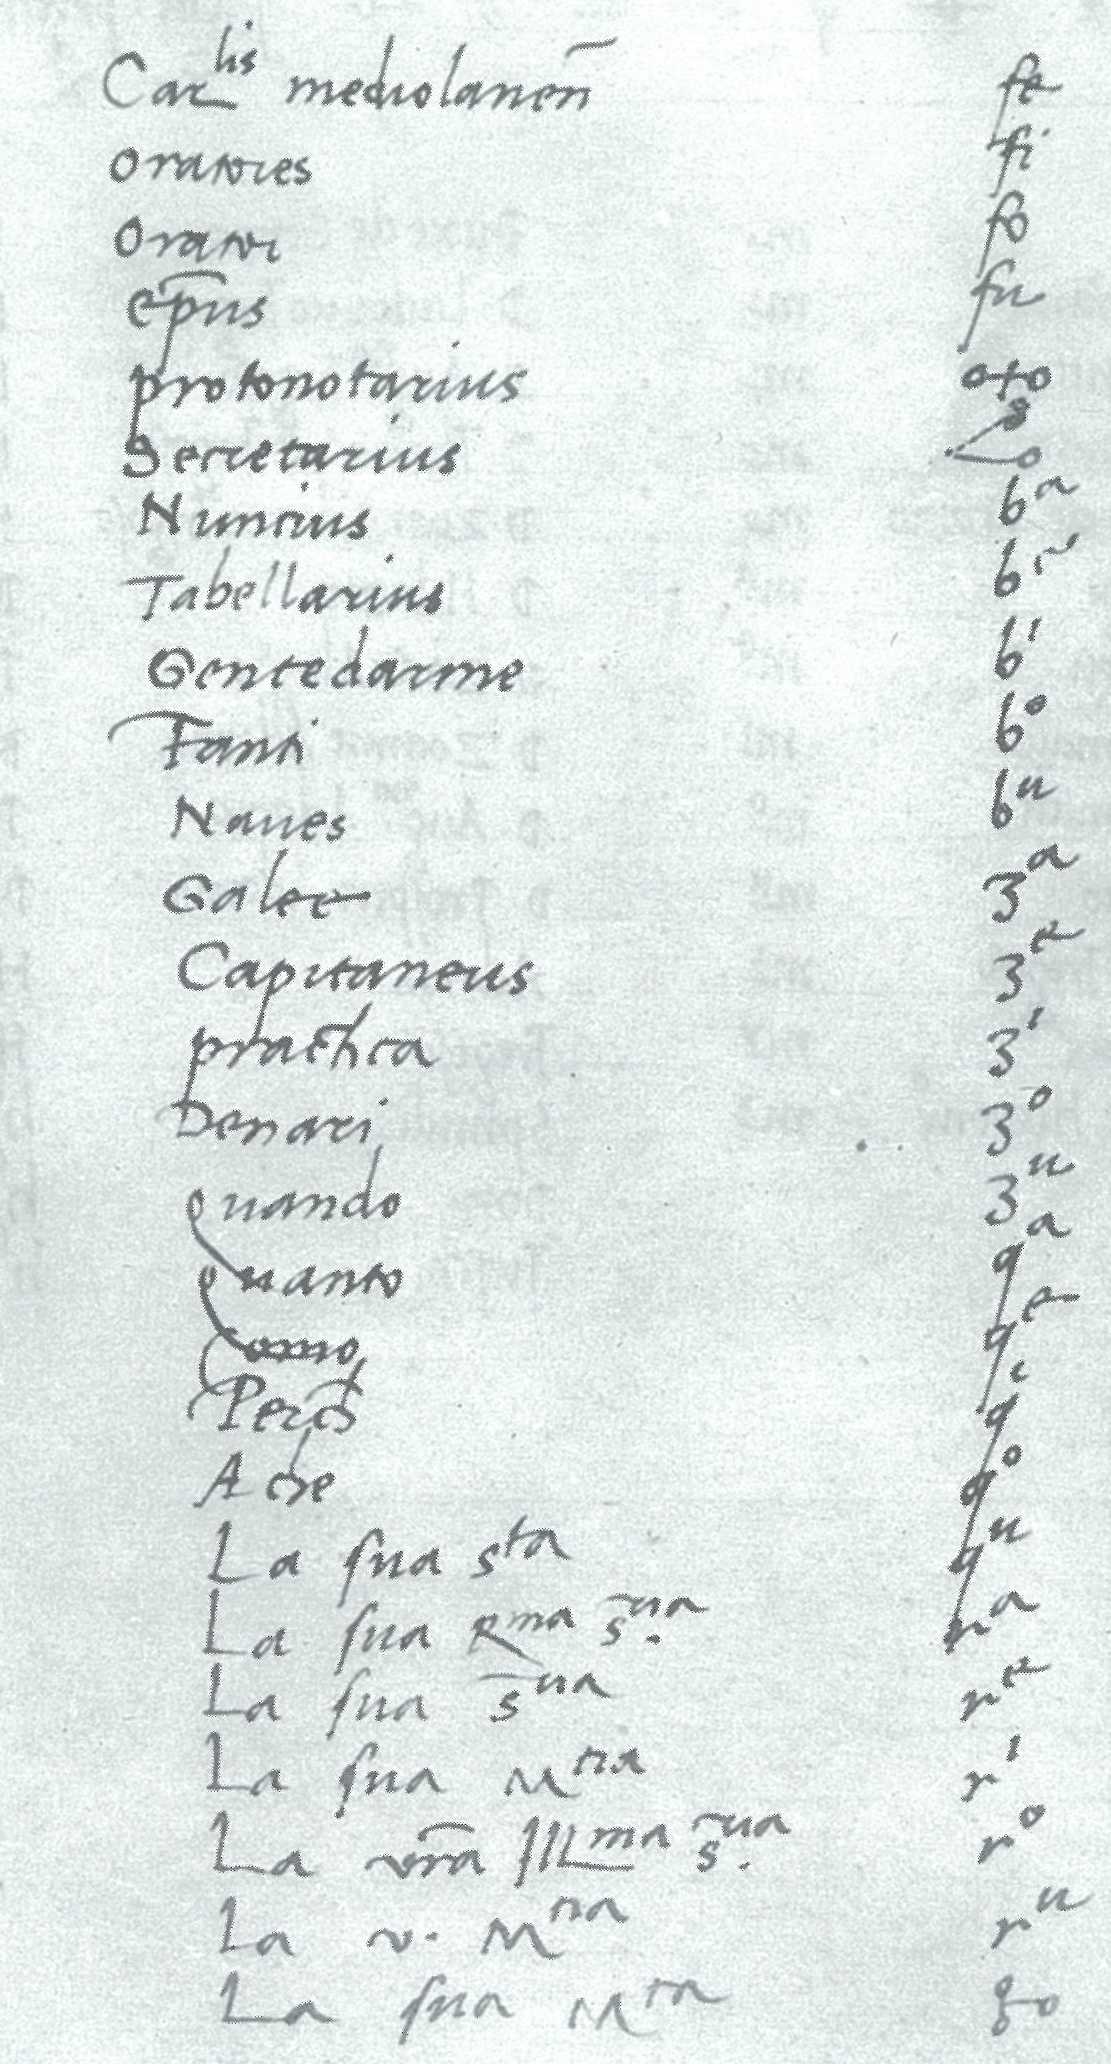 Car.lis mediolanen̄ fe
Oratores fi
Orator fo
ep̄us fu
protonotarius o+o
Secretarius
Nuncius bᵃ
Tabellarius bᵉ
Gentedarme bⁱ
Fanti bᵒ
Naues bᵘ
Galee 3ᵃ
Capitaneus 3ᵉ
practica 3ⁱ
Denari 3ᵒ
quando 3ᵘ
quanto qᵃ
Como qᵉ
Perch̄ qⁱ
A che qᵒ
La sua sᵗᵃ qᵘ
La sua Rᵐᵃ s̄ʳⁱᵃ. rᵃ
La sua s̄ʳⁱᵃ rᵉ
La sua Mᵗⁱᵃ rⁱ
La vr̄a Illᵐᵃ s̄ʳⁱᵃ. rᵒ
La v. Mᵗⁱᵃ rᵘ
La sua Mᵗᵃ go